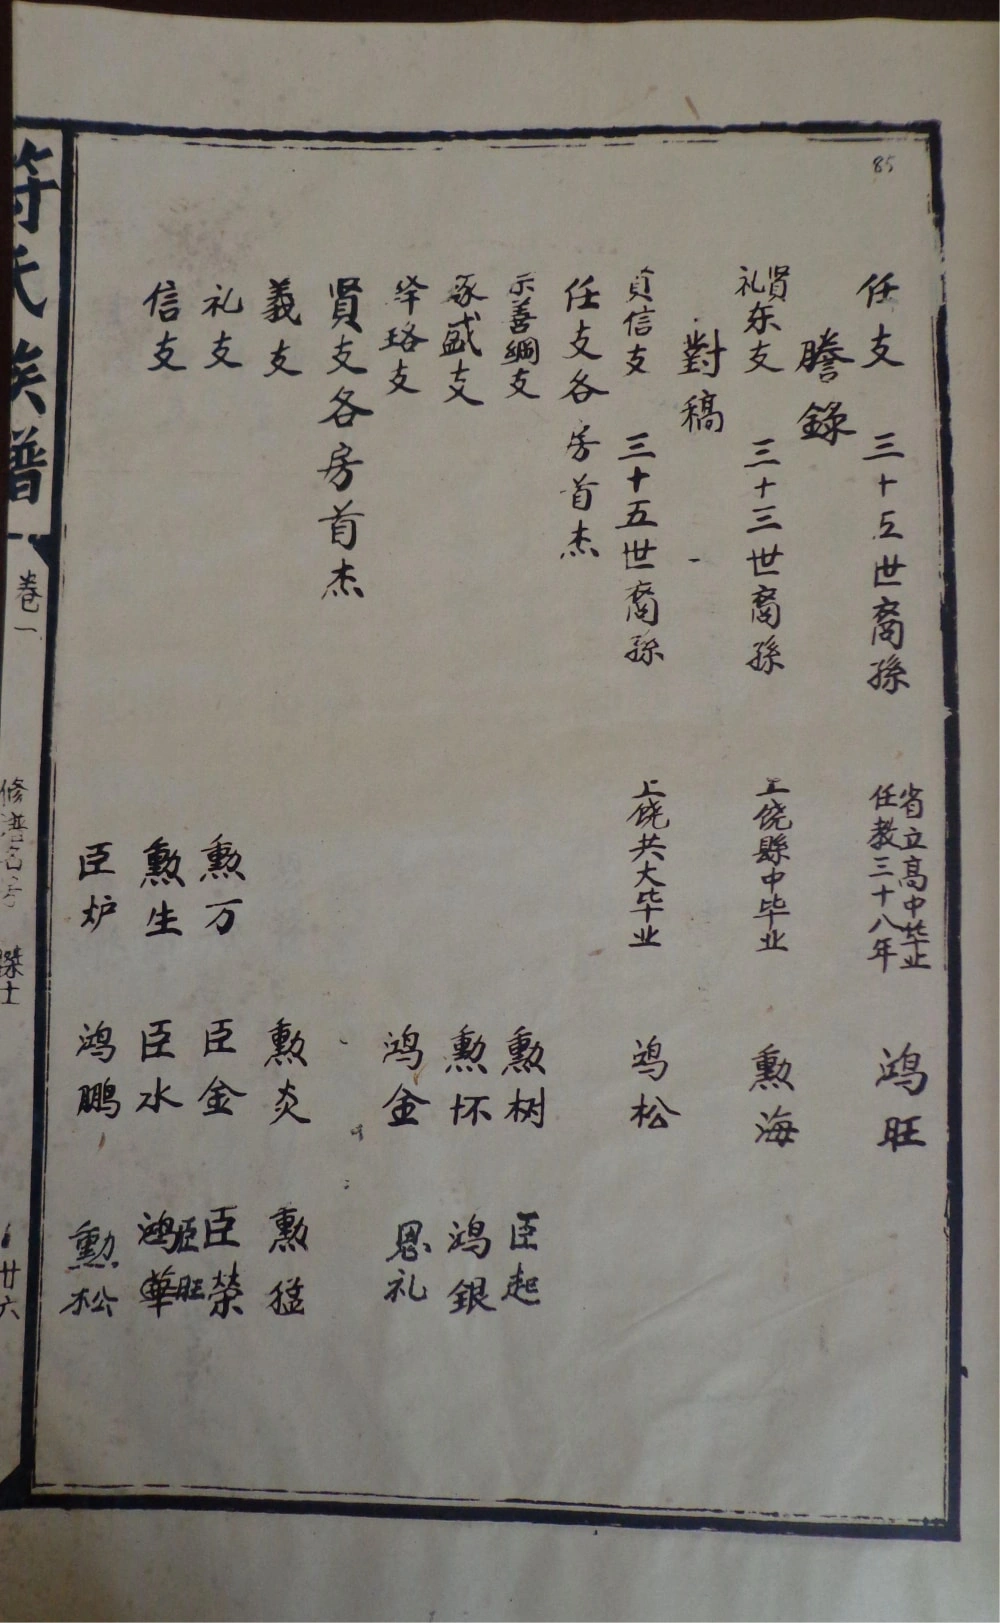 85
任支 三十五世裔孫 省立高中毕业 任教三十八年 鸿旺
謄錄
賢礼东支 三十三世裔孫 上饶縣中毕业 勲海
對稿
贞信支 三十五世裔孫 上饶共大毕业 鸿松
任支各房首杰
示善綱支 勲树 臣起
琢盛支 勲怀 鸿銀
峯珞支 鸿金 恩礼
賢支各房首杰
義支 勲炎 勲猛
礼支 勲万 臣金 臣榮
臣旺
信支 勲生 臣水 鸿華
臣炉 鸿鹏 勲松
符氏族譜 卷一 修譜名号 傑士 廿六